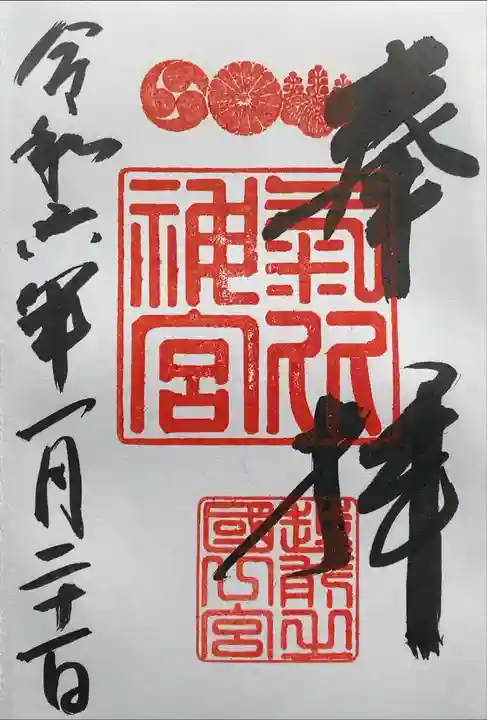 奉拝
氣比
神宮
越前之
國一宮
令和六年一月二十一日